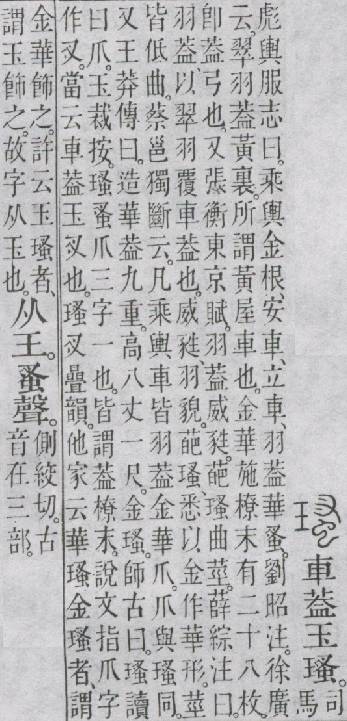 瑵車葢玉瑵。司馬
彪輿服志曰。乘輿金根、安車、立車、羽葢華蚤。劉昭注。徐廣
云。翠羽葢黃裏。所謂黃屋車也。金華施橑末有二十八枚。
卽葢弓也。又張衡東京賦。羽葢威甤。葩瑵曲莖。薛綜注曰。
羽葢以翠羽覆車葢也。威甤羽貌。葩瑵、悉以金作華形。莖
皆低曲。蔡邕獨斷云。凡乘輿車皆羽葢金華爪。爪與瑵同。
又王莽傳曰。造華葢九重。高八丈一尺。金瑵。師古曰。瑵讀
曰爪。玉裁按。瑵蚤爪三字一也。皆謂葢橑末。說文指爪字
作叉。當云車葢玉叉也。瑵叉曡韻。他家云華瑵金瑵者、謂
金華飾之。許云玉瑵者、
謂玉飾之。故字从玉也。
从王。蚤聲。
側絞切。古
音在三部。